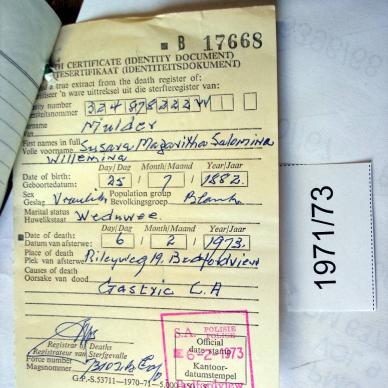 B 17668
TH CERTIFICATE (IDENTITY DOCUMENT)
TESERTIFIKAAT (IDENTITEITSDOKUMENT)
a true extract from the death register of:
'n ware uittreksel uit die sterfteregister van:
Mulder
First names in full Susara Magaritha Salomina
Volle voorname Willemina
Day/Dag Month/Maand Year/Jaar
Date of birth:
Geboortedatum 25 7 1882.
Sex Population group
Geslag Vroulik Bevolkingsgroep Blank
Marital status
Huwelikstaat Weduwee.
Day/Dag Month/Maand Year/Jaar
Date of death:
Datum van afsterwe: 6 2 1973.
Place of death
Plek van afsterwe: Rileyweg 19. Bedfordview
Causes of death
Oorsake van dood
Gastric C.A
Registrar of Deaths
Registrateur van Sterfgevalle
Force number
Magsnommer
G.P.-S.53711—1970-71—
S.A. POLISIE
POLICE
Official
date stamp
6-2-1973
Kantoor-
datumstempel
Bedfordview
1971/73